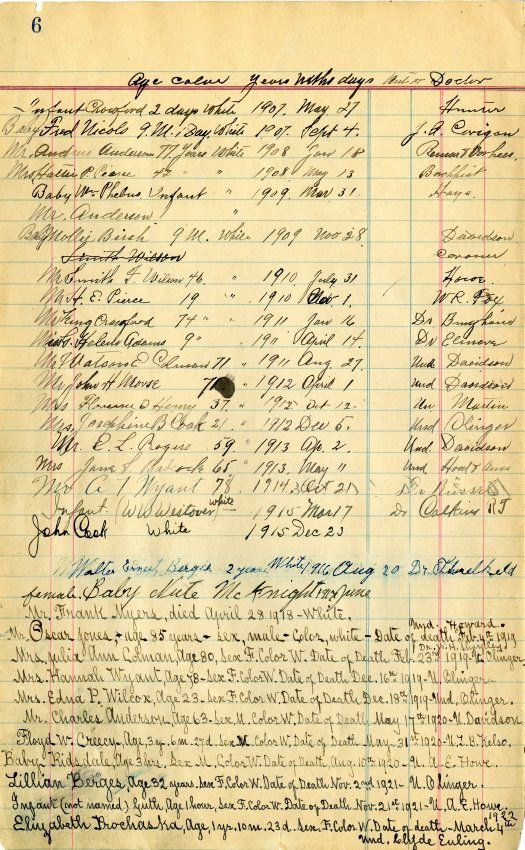 6
Age Color Years Mths days Doctor
Infant Crawford 2 days White 1907. May 27 Hunter
Baby Fred Nicols 9 M. 1 Day White 1907. Sept 4. J. A. Corigan
Mr. Andrew Anderson 77 Years White 1908 Jan 18
Mrs Hattie P. 47 " " 1908 May 13
Baby Wm Phebus Infant " 1909 Mar 31. Hays.
Mr. Anderson "
Baby Molly Birsh 9 M. White 1909 Nov 28 Davidson
Smith Wilson Coroner
Mr Smith F. Wilson 46. " 1910 July 31 Howe
Mr H. E. Pierce 19 " 1910 Nov 1. W R. Fox
Mr King Crawford 74 " " 1911 Jan 16 Dr Bingham
Miss Helene Adams 9 " 1911 April 14. Dr Elmore
Mr Watson E Colman 71 " 1911 Aug 27. Und Davidson
Mr John H Morse 1912 April 1 Und Davidson
Mrs Florence D Henry 37. " 1912 Oct 12. Un Martin
Mrs Josephine B Cook 21. " 1912 Dec 5. Und Olinger
Mr. E. L. Rogers 59 " 1913 Ap. 2. Und. Davidson
Mrs Jane S. 65 " 1913. May 11 Und
Mr A. J Wyant 78 " 1914 Oct 21 Dr Russell
Infant. (W W Westover) White 1915 Mar 17 Dr Calkins R F
John Cook White 1915 Dec 23
Walter Ernest Berges 2 years White 1916 Aug 20 Dr Threlkeld
female. Baby Nute McKnight June
Mr. Frank Myers, died April 28 1918 - White. Und. Howard.
Mr. Oscar Jones, - age 85 years - Sex, male - Color, white - Date of death, Feb 4th 1919
Dr. W. H.
Mrs. Julia Ann Colman, Age 80, Sex F. Color W. Date of Death Feb. 23rd 1919 - U. Olinger.
Mrs. Hannah Wyant, Age 78 - Sex F. Color W. Date of Death Dec. 16th 1919 - U. Olinger -
Mrs. Edna P. Wilcox, Age 23 - Sex F. Color W. Date of Death Dec. 18th 1919 - Und. Olinger.
Mr. Charles Anderson, Age 63 - Sex M. Color W. Date of Death, May 17th 1920 - U. Davidson
Floyd W. Creecy - Age, 3 y. 6 m. 27 d. Sex M. Color W. Date of Death - May - 31st 1920 - U. L. B. Kelso.
Baby Ridsdale, Age 3 hrs, Sex M., Color W. Date of Death Aug. 10th 1920 - U. A. E. Howe.
Lillian Berges, Age 32 years. Sex F. Color W. Date of Death Nov. 22nd 1921 - U. Olinger.
Infant (not named) Guth, Age 1 hour, Sex F. Color W. Date of Death Nov. 21st 1921 - U. A. E. Howe.
Elizabeth Prochaska, Age, 1 yr. 10 m. 23 d. Sex F. Color W. Date of death - March 4th 1922
Und. Clyde Euling.